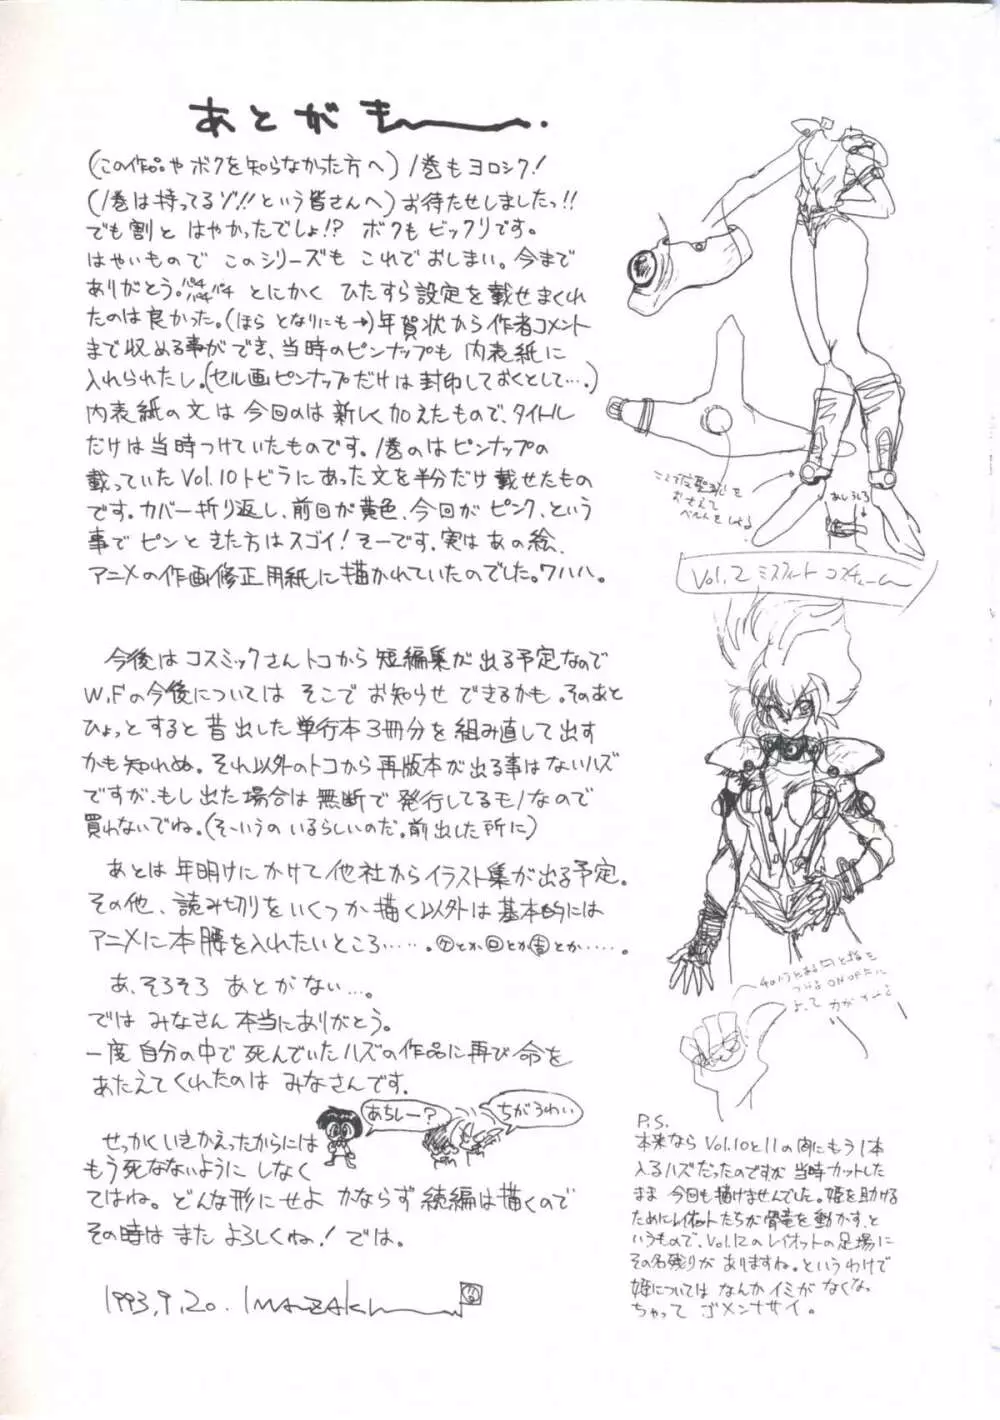 あとがき―――.
(この作品や ボクを知らなかった方へ) 1巻もヨロシク!
(1巻は持ってるゾ!!という皆さんへ) お待たせしましたっ!!
でも割と はやかったでしょ!? ボクも ビックリです。
はやいもので このシリーズも これで おしまい。今まで
ありがとう。パチパチパチ とにかく ひたすら設定を載せまくれ
たのは良かった。(ほら となりにも→)年賀状から作者コメント
まで収める事ができ、当時のピンナップも 内表紙に
入れられたし。(セル画ピンナップだけは封印しておくとして….)
内表紙の文は今回のは新しく加えたもので、タイトル
だけは当時つけていたものです。1巻のはピンナップの
載っていたVol.10トビラにあった文を半分だけ載せたもの
です。カバー折り返し、前回が黄色、今回がピンク、という
事でピンときた方はスゴイ! そーです、実はあの絵、
アニメの作画修正用紙に描かれていたのでした。ワハハ。
今後はコスミックさんトコから短編集が出る予定なので
W.Fの今後については そこで お知らせ できるかも。そのあと
ひょっとすると昔出した単行本3冊分を組み直して出す
かも知れぬ。それ以外のトコから再版本が出る事はないハズ
ですが、もし出た場合は無断で発行してるモノなので
買わないでね。(そーいうの いるらしいのだ。前出した所に)
あとは年明けにかけて他社からイラスト集が出る予定。
その他、読み切りをいくつか描く以外は基本的には
アニメに本腰を入れたいところ……。
あ、そろそろ あとがない…。
では みなさん 本当にありがとう。
一度自分の中で死んでいたハズの作品に再び命を
あたえてくれたのは みなさんです.
あちしー?
ちがうわい
せっかくいきかえったからには
もう死なないように しなく
てはね。どんな形にせよ かならず続編は描くので
その時はまた よろしくね! では。
1993,9,20. IMAZAKI
Vol.2 ミスフィート コスチューム
P.S.
本来なら Vol.10と11の間にもう1本
入るハズだったのですが 当時カットした
まま 今回も描けませんでした。姫を助ける
ためにレイオットたちが骨竜を動かす、と
いうもので、Vol.12のレイオットの足場に
その名残りが ありますね。というわけで
姫については なんかイミが なくな、
ちゃって ゴメンナサイ。